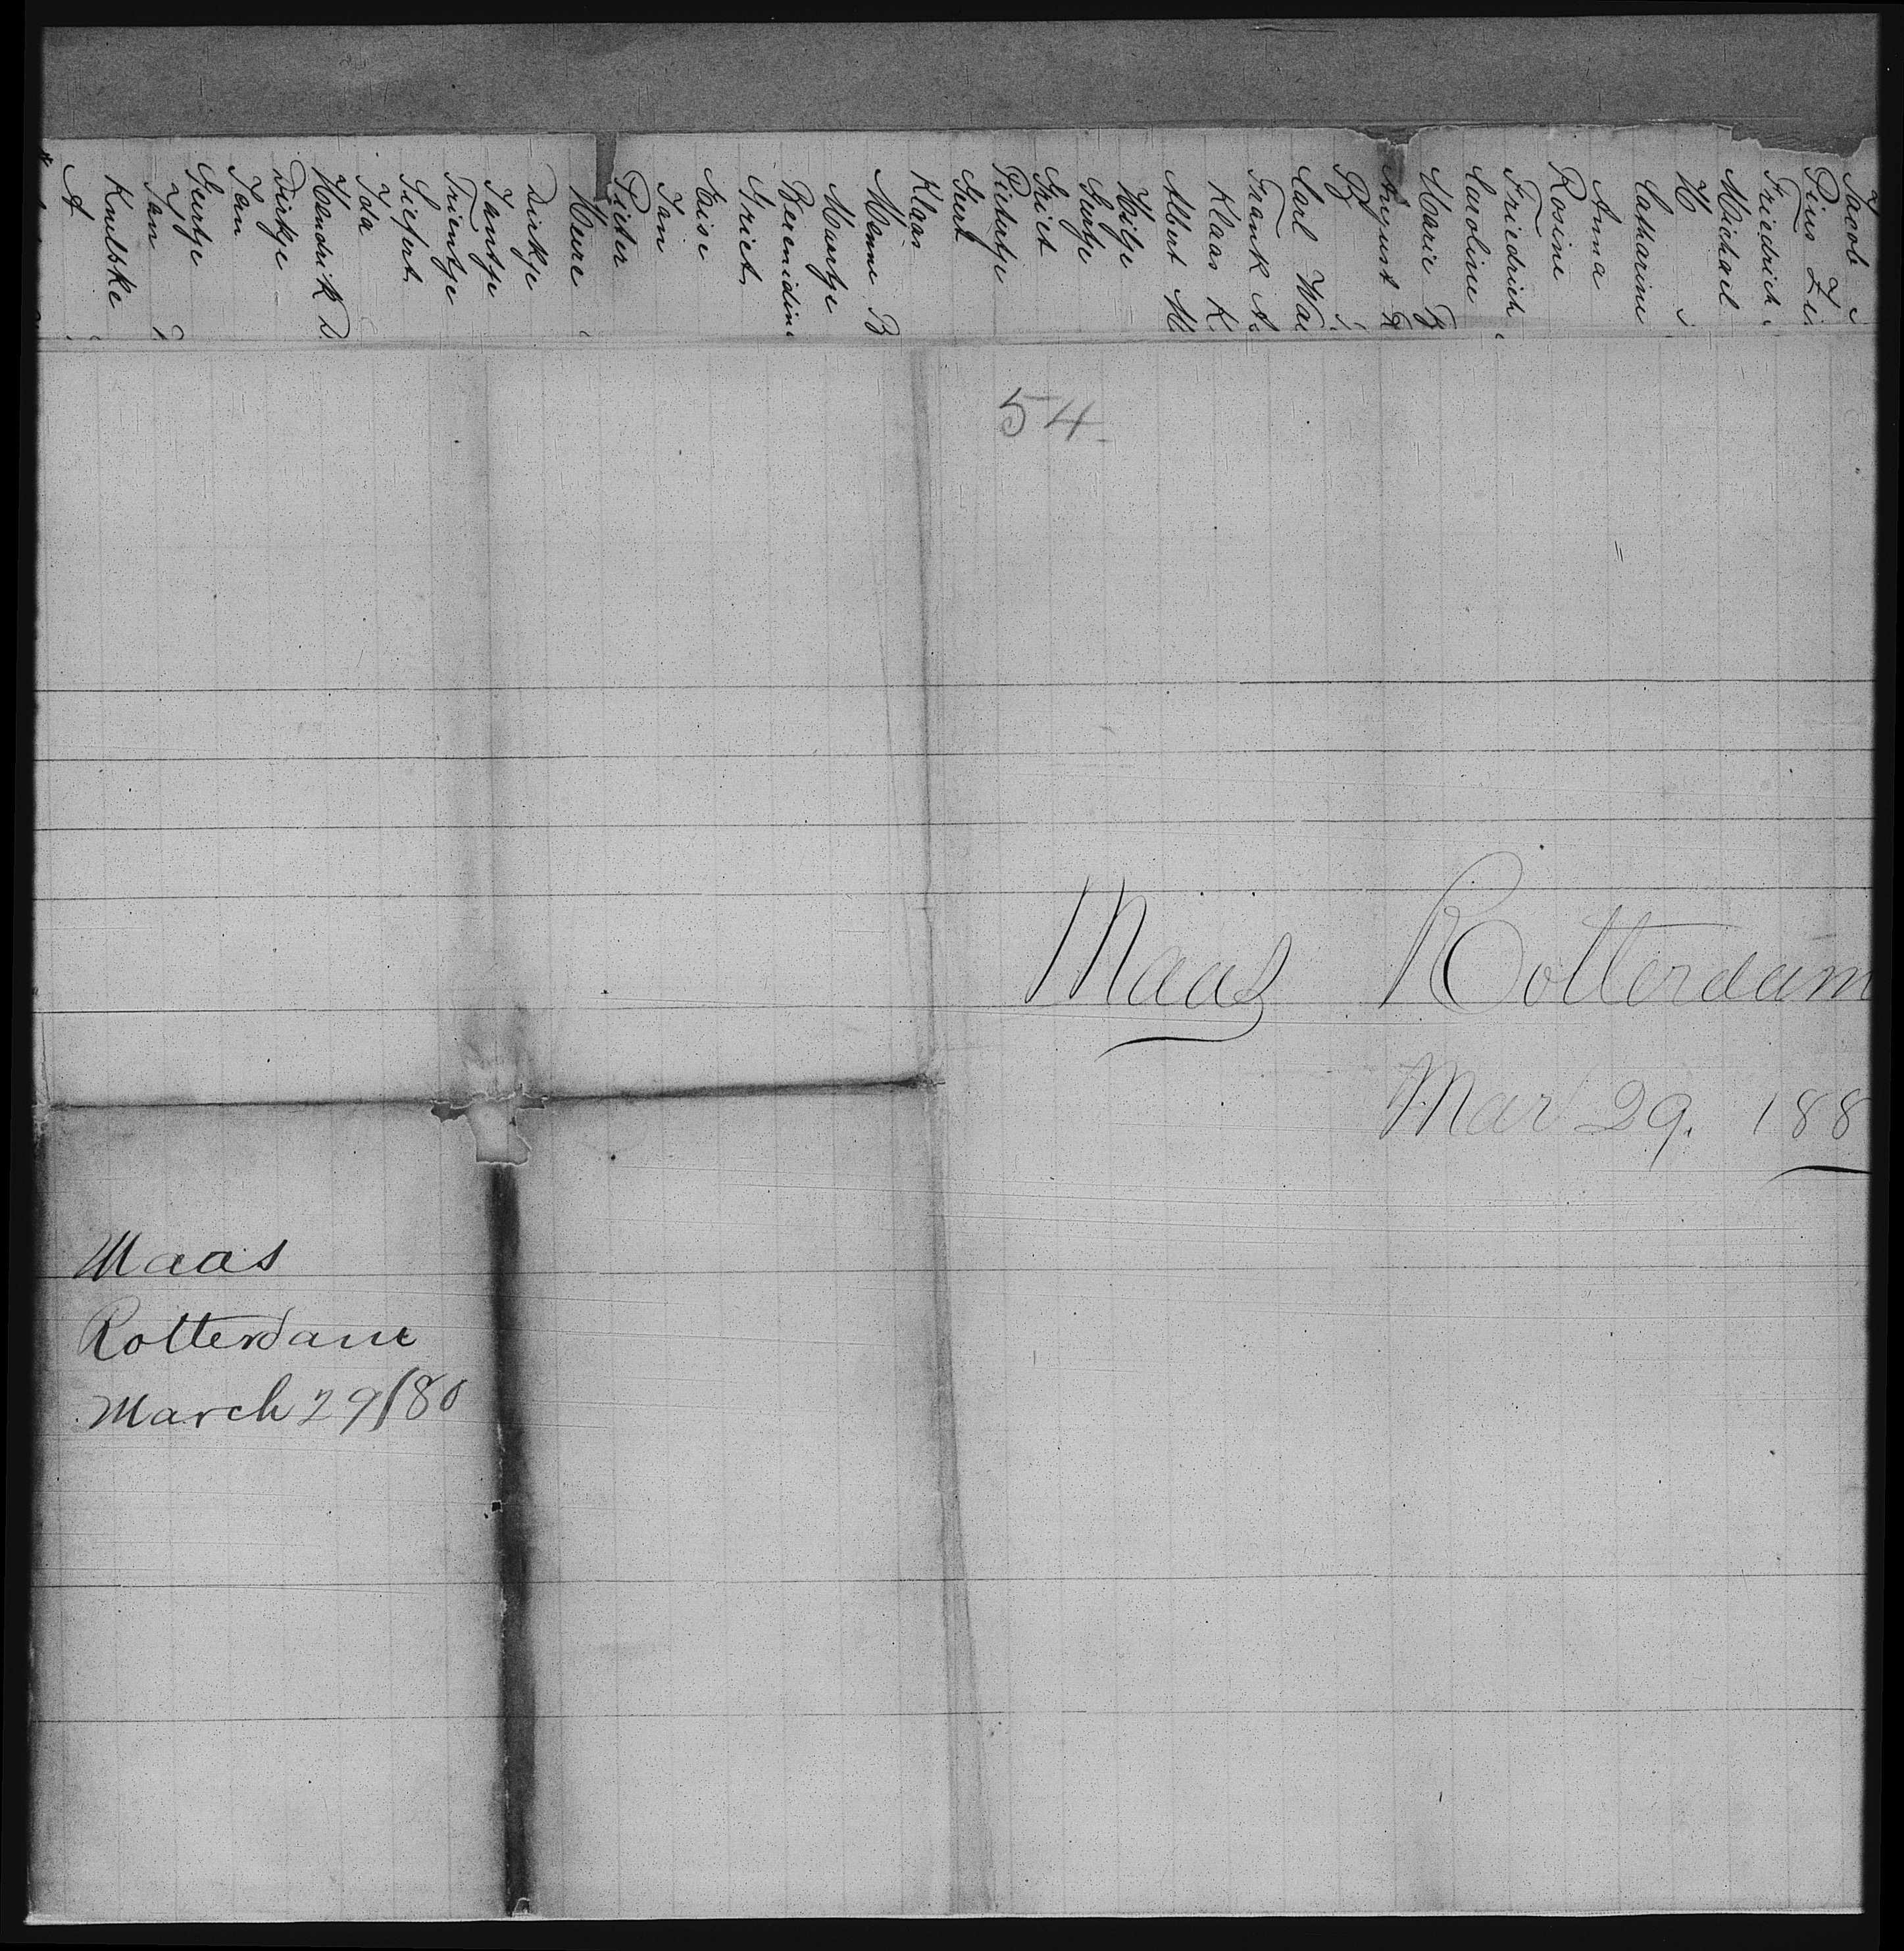 Jacob
Pius Zi
Friedrich
Michael
H
Catharine
Anna
Rosine
Friedrich
Caroline
Marie B
August R
B
Carl Wal
Frank A
Klaas K
Albert M
Hilje
Geertje
Griet
Pietertje
Geert
Klaas
Menne B
Martje
Griet
Eise
Jan
Pieter
Dirkje
Jantje
Trientje
Siefert
Ida
Hendrik D
Dirkje
Jan
Geertje
Jan
A
54
Maas Rotterdam
Mar 29. 188
Maas
Rotterdam
March 29/80